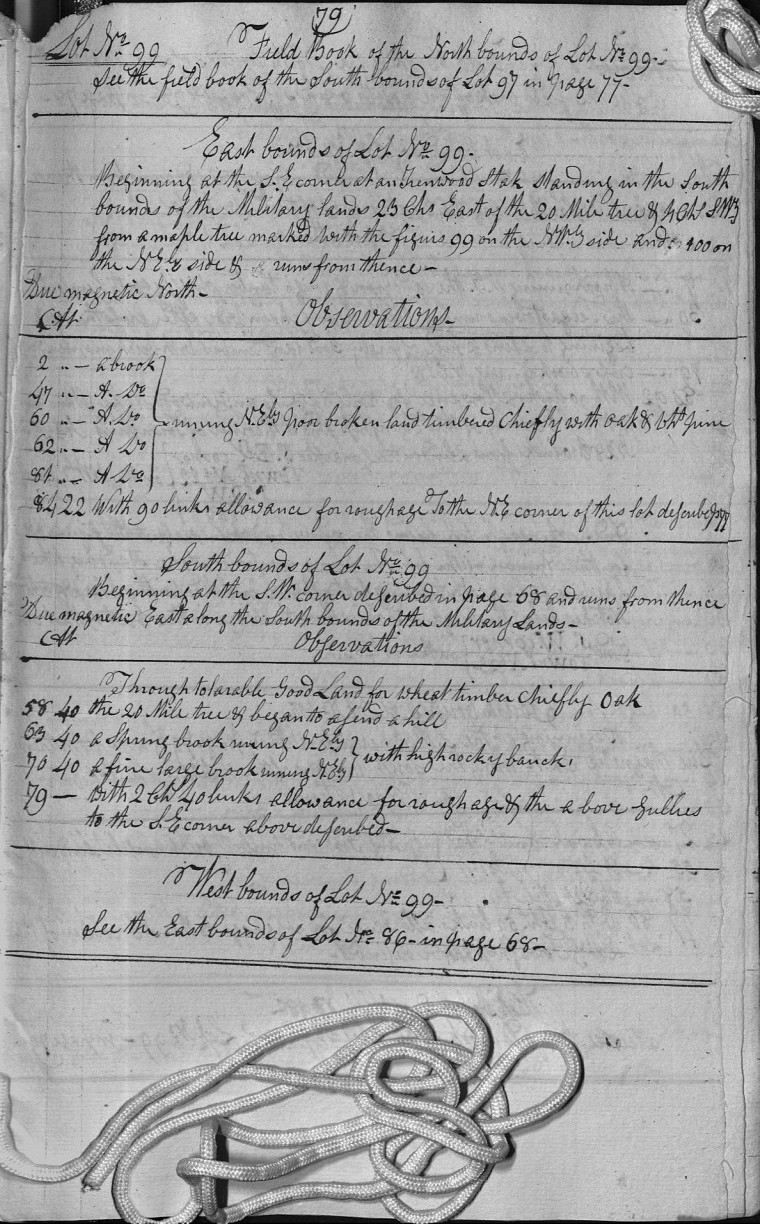 79
Lot No. 99 Field Book of the North bounds of Lot No. 99-
See the field book of the South bounds of Lot 97 in page 77-
East bounds of Lot No. 99-
Beginning at the S.E corner at an Irenwood Stak standing in the South
bounds of the Military lands 23 Chs East of the 20 Mile tree & 4 Chs S.Wly
from a maple tree marked with the figurs 99 on the N.W.ly side and 100 on
the N.E.ly side & runs from thence-
Due magnetic North-
At Observations-
2 " - a brook
47 " - A Do
60 " - A Do runing N.Ely poor broken land timbered Chiefly with oak & Wht pine
62 " - A Do
81 " - A Do
84,22 With 90 links allowance for roughage To the N.E corner of this lot described
South bounds of Lot No. 99
Beginning at the S.W. corner described in page 68 and runs from thence
Due magnetic East along the South bounds of the Military Lands-
At Observations
Through tolarable Good Land for wheat timber chiefly Oak
58 40 the 20 Mile tree & began to asend a hill
63 40 a Spring brook runing N.Ely
70 40 a fine large brook runing N.Ely with high rocky banck.
79 — With 2 Chs 40 links allowance for roughage & the above Gullies
to the S.E corner above described-
West bounds of Lot No. 99-
See the East bounds of Lot No. 86- in page 68-